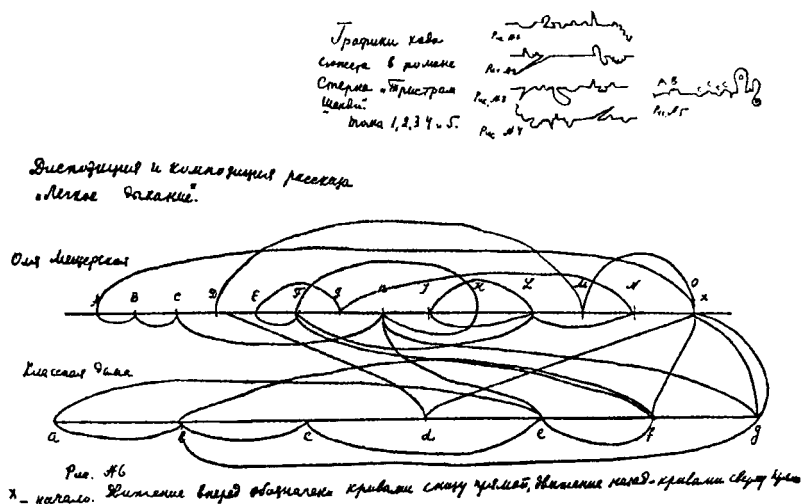 Графики хова
сюжета в романе
Стерна „Тристрам
Шенди“
тома 1, 2, 3 4 и 5.
Рис. №1
Рис. №2
Рис. №3
Рис. №4
A B C C C
Рис. №5
Диспозиция и композиция рассказа
„Легкое дыхание“.
Оля Мещерская
A B C D E F g H J K L M N O
x
Классная дама
a b c d e f g
Рис. №6
x – начало. Движение вперед обозначено кривыми снизу прямой, движение назад – кривыми сверху